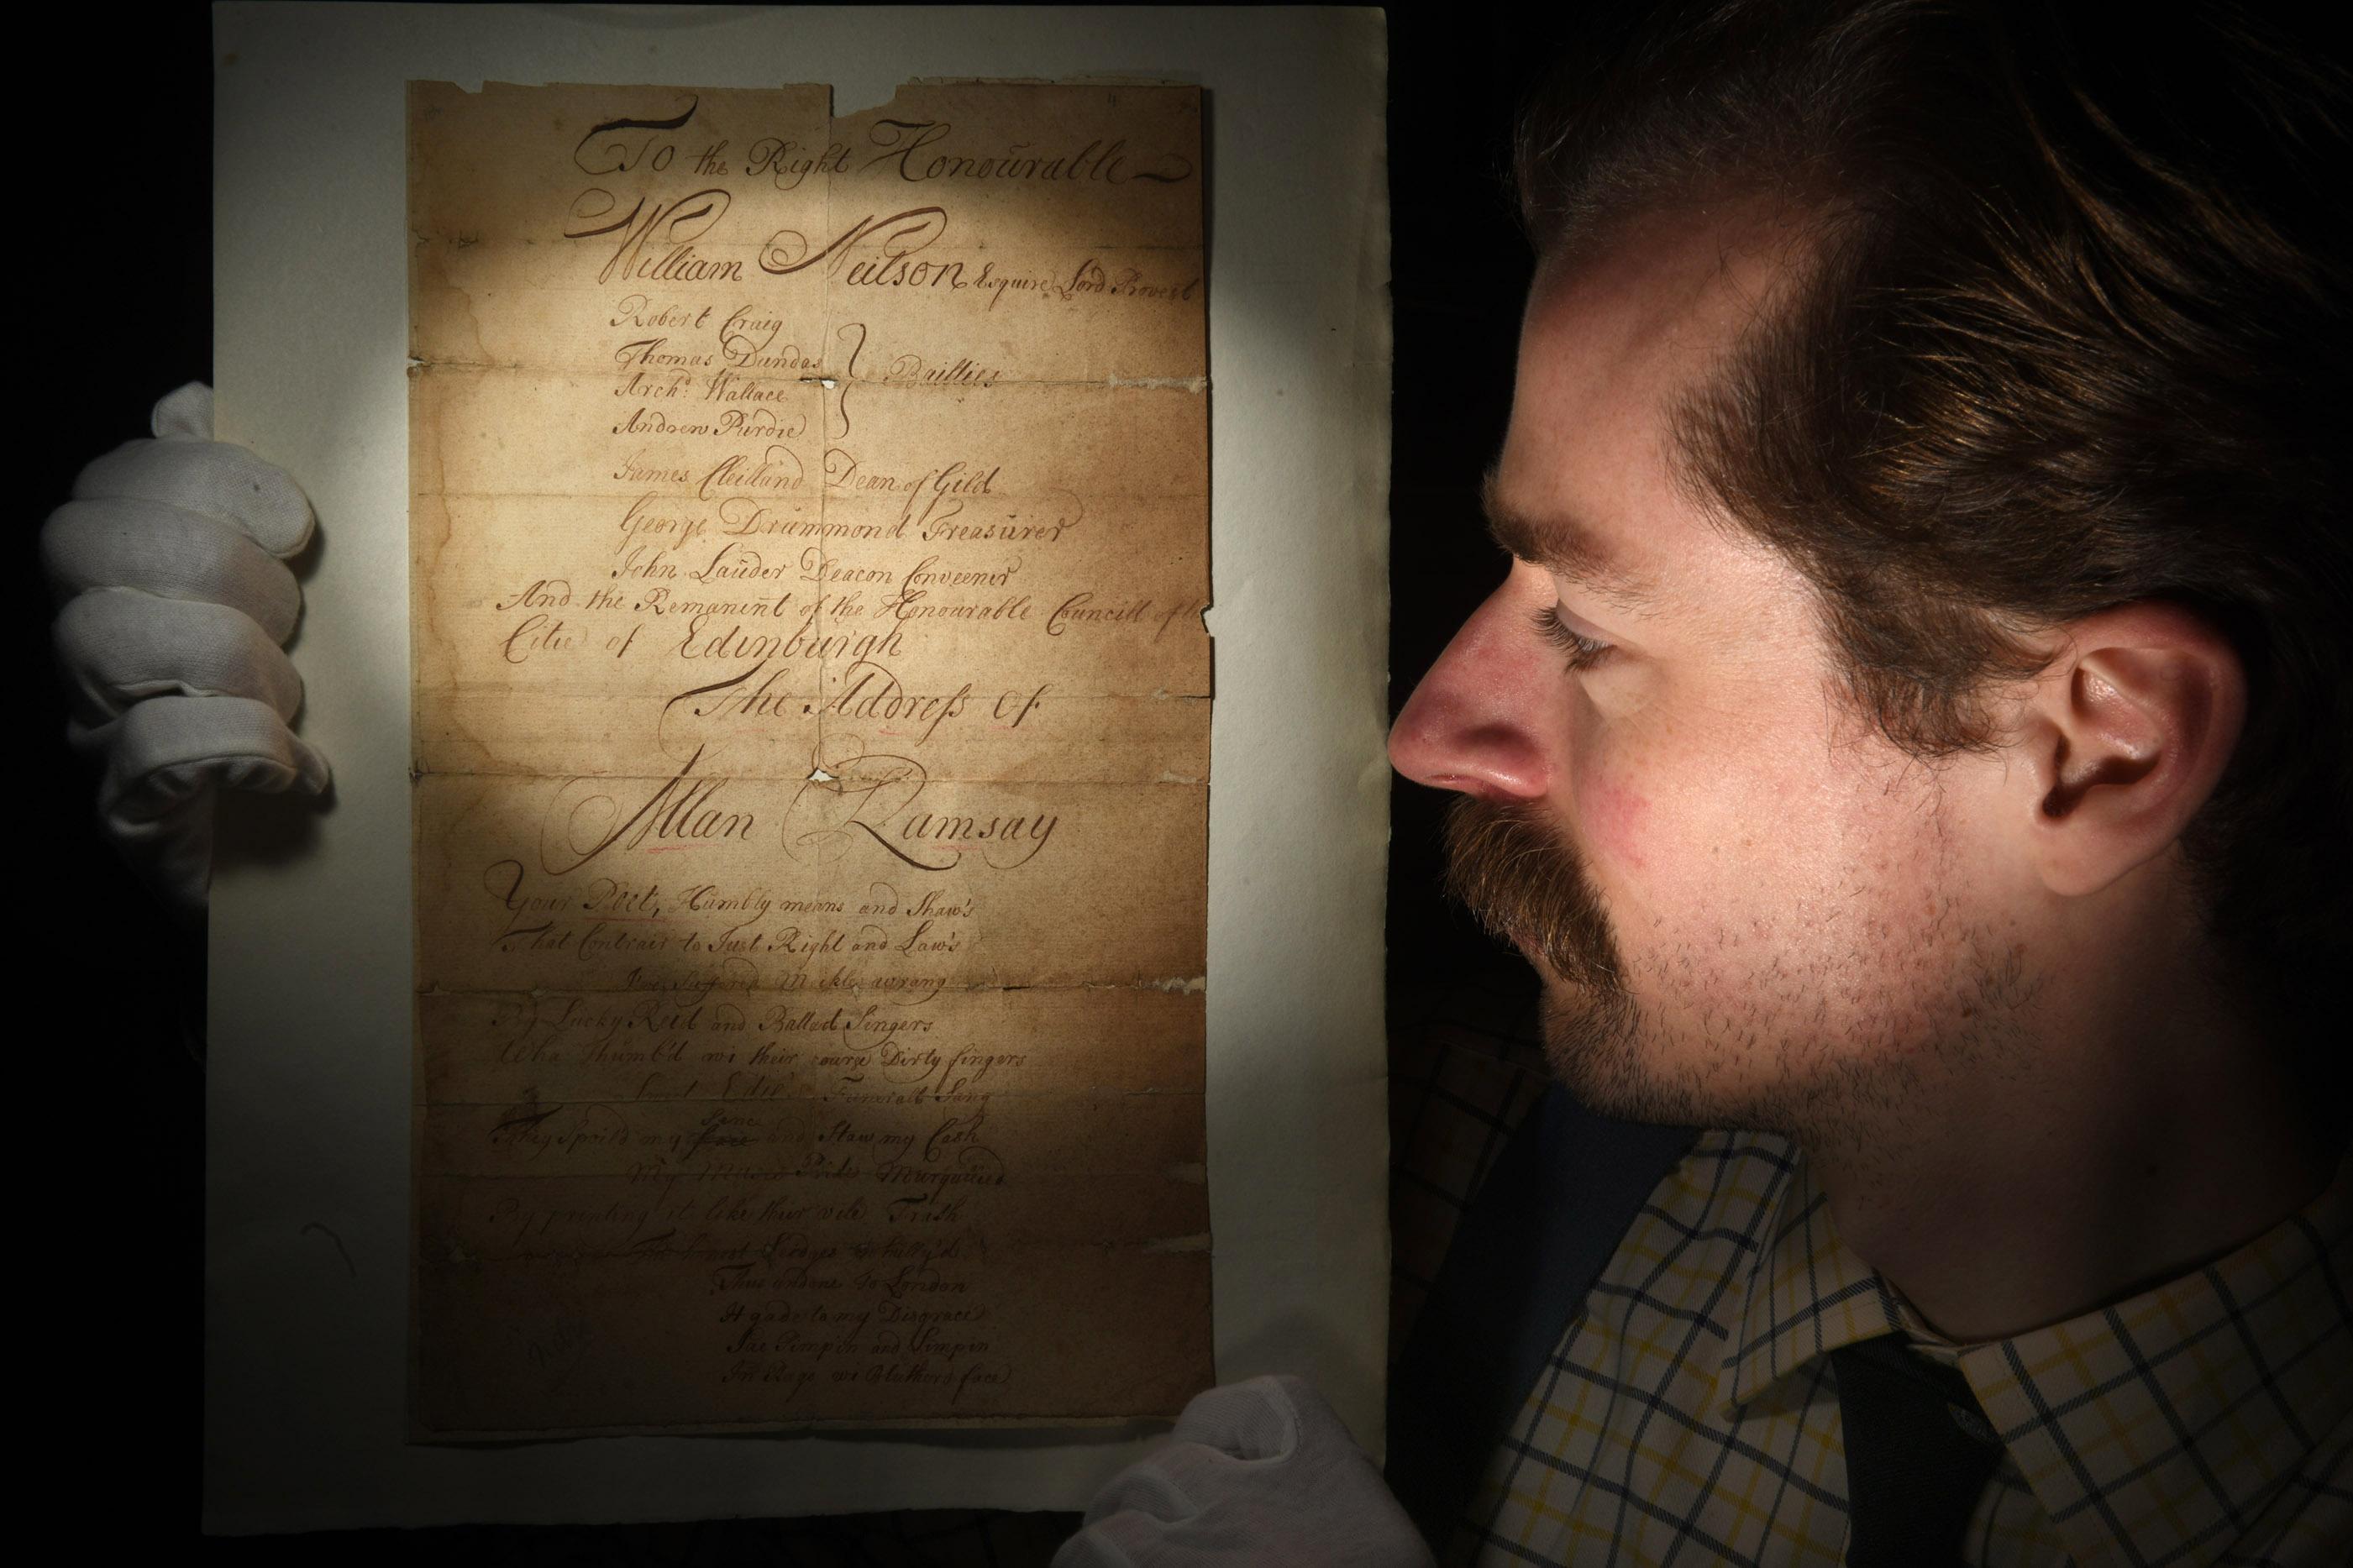 To the Right Honourable
William Neilson Esquire Lord Provest
Robert Craig
Thomas Dundas
Archd: Wallace
Andrew Purdie
} Baillies
James Cleilland Dean of Gild
George Drummond Treasurer
John Lauder Deacon Conveener
And the Remanent of the Honourable Councill of the
Citie of Edinburgh
The Address Of
Allan Ramsay
Your Poet, Humbly means and Shaw's
That Contrair to Just Right and Law's
Mickle wrang
By Lucky Reid and Ballad Singers
Wha Thumb'd wi their course Dirty fingers
Sweet Edie's Funerall Sang
They Spoild my Sence and Staw my Cash
My Muses Pride Murgullied
By printing it like their vile Trash
The Honest Leidges whully'd
Thus undone to London
It gade to my Disgrace
Sae Pimpin and Limpin
In Rags wi Bluthers face